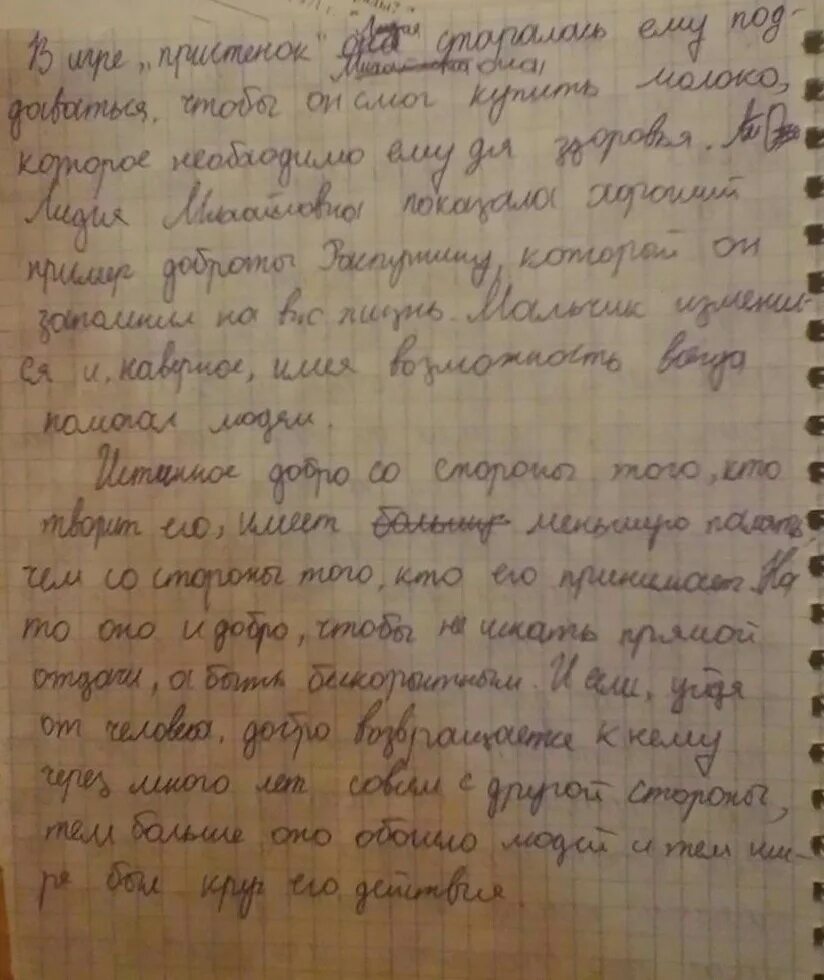 В игре „пристенок" Лидия старалась ему под-
Михайловна
даваться, чтобы он смог купить молоко,
которое необходимо ему дя здоровья.
Лидия Михайловна показала хороший
пример доброты Распутину, который он
запомнил на всю жизнь. Мальчик изменил-
ся и, наверное, имея возможность всегда
помогал людям.
Истинное добро со стороны того, кто
творит его, имеет большую меньшую память
чем со стороны того, кто его принимает. На
то оно и добро, чтобы не искать прямой
отдачи, а быть бескорыстным. И если, уйдя
от человека, добро возвращается к нему
через много лет совсем с другой стороны,
тем больше оно обошло людей и тем ши-
ре был круг его действия